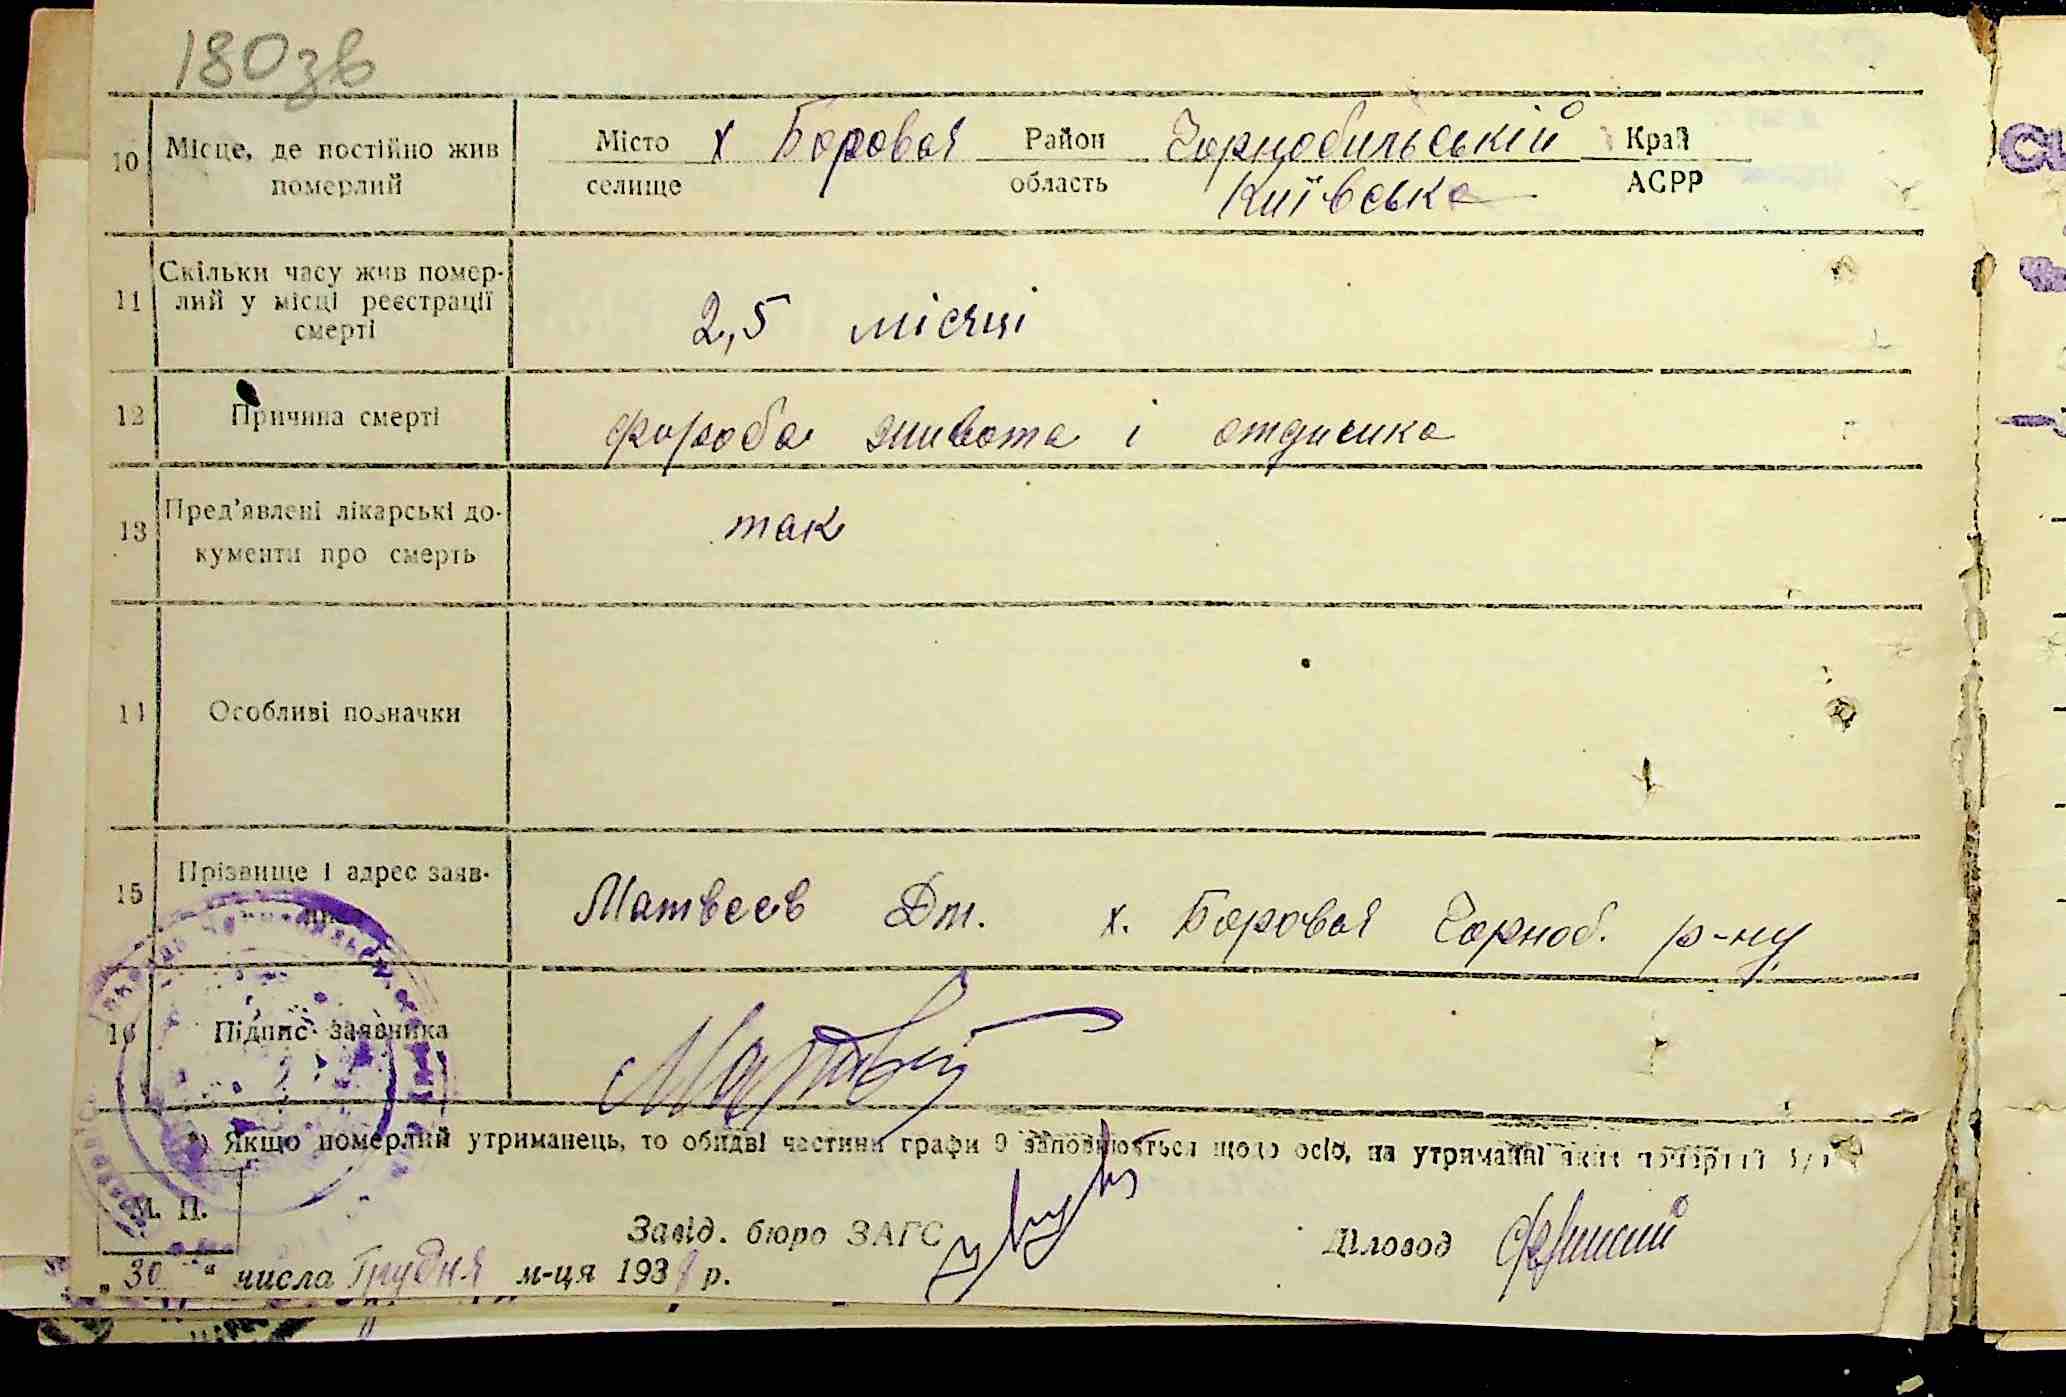 180зв
10 Місце, де постійно жив померлий Місто селище х Боровая Район область Чорнобильській Київська Край АСРР
11 Скільки часу жив помер-
лий у місці реєстрації
смерті
2,5 місяці
12 Причина смерті живота і отдишка
13 Пред'явлені лікарські до-
кументи про смерть
так
14 Особливі позначки
15 Прізвище і адрес заяв-
Матвеев Дм. х. Боровая Чорноб. р-ну
16 Підпис заявника
*) Якщо померлий утриманець, то обидві частини графи 9 заповнюються щодо осіб, на утриманні яких
М. П.
Завід. бюро ЗАГС Діловод
„30“ числа Грудня м-ця 1938 р.